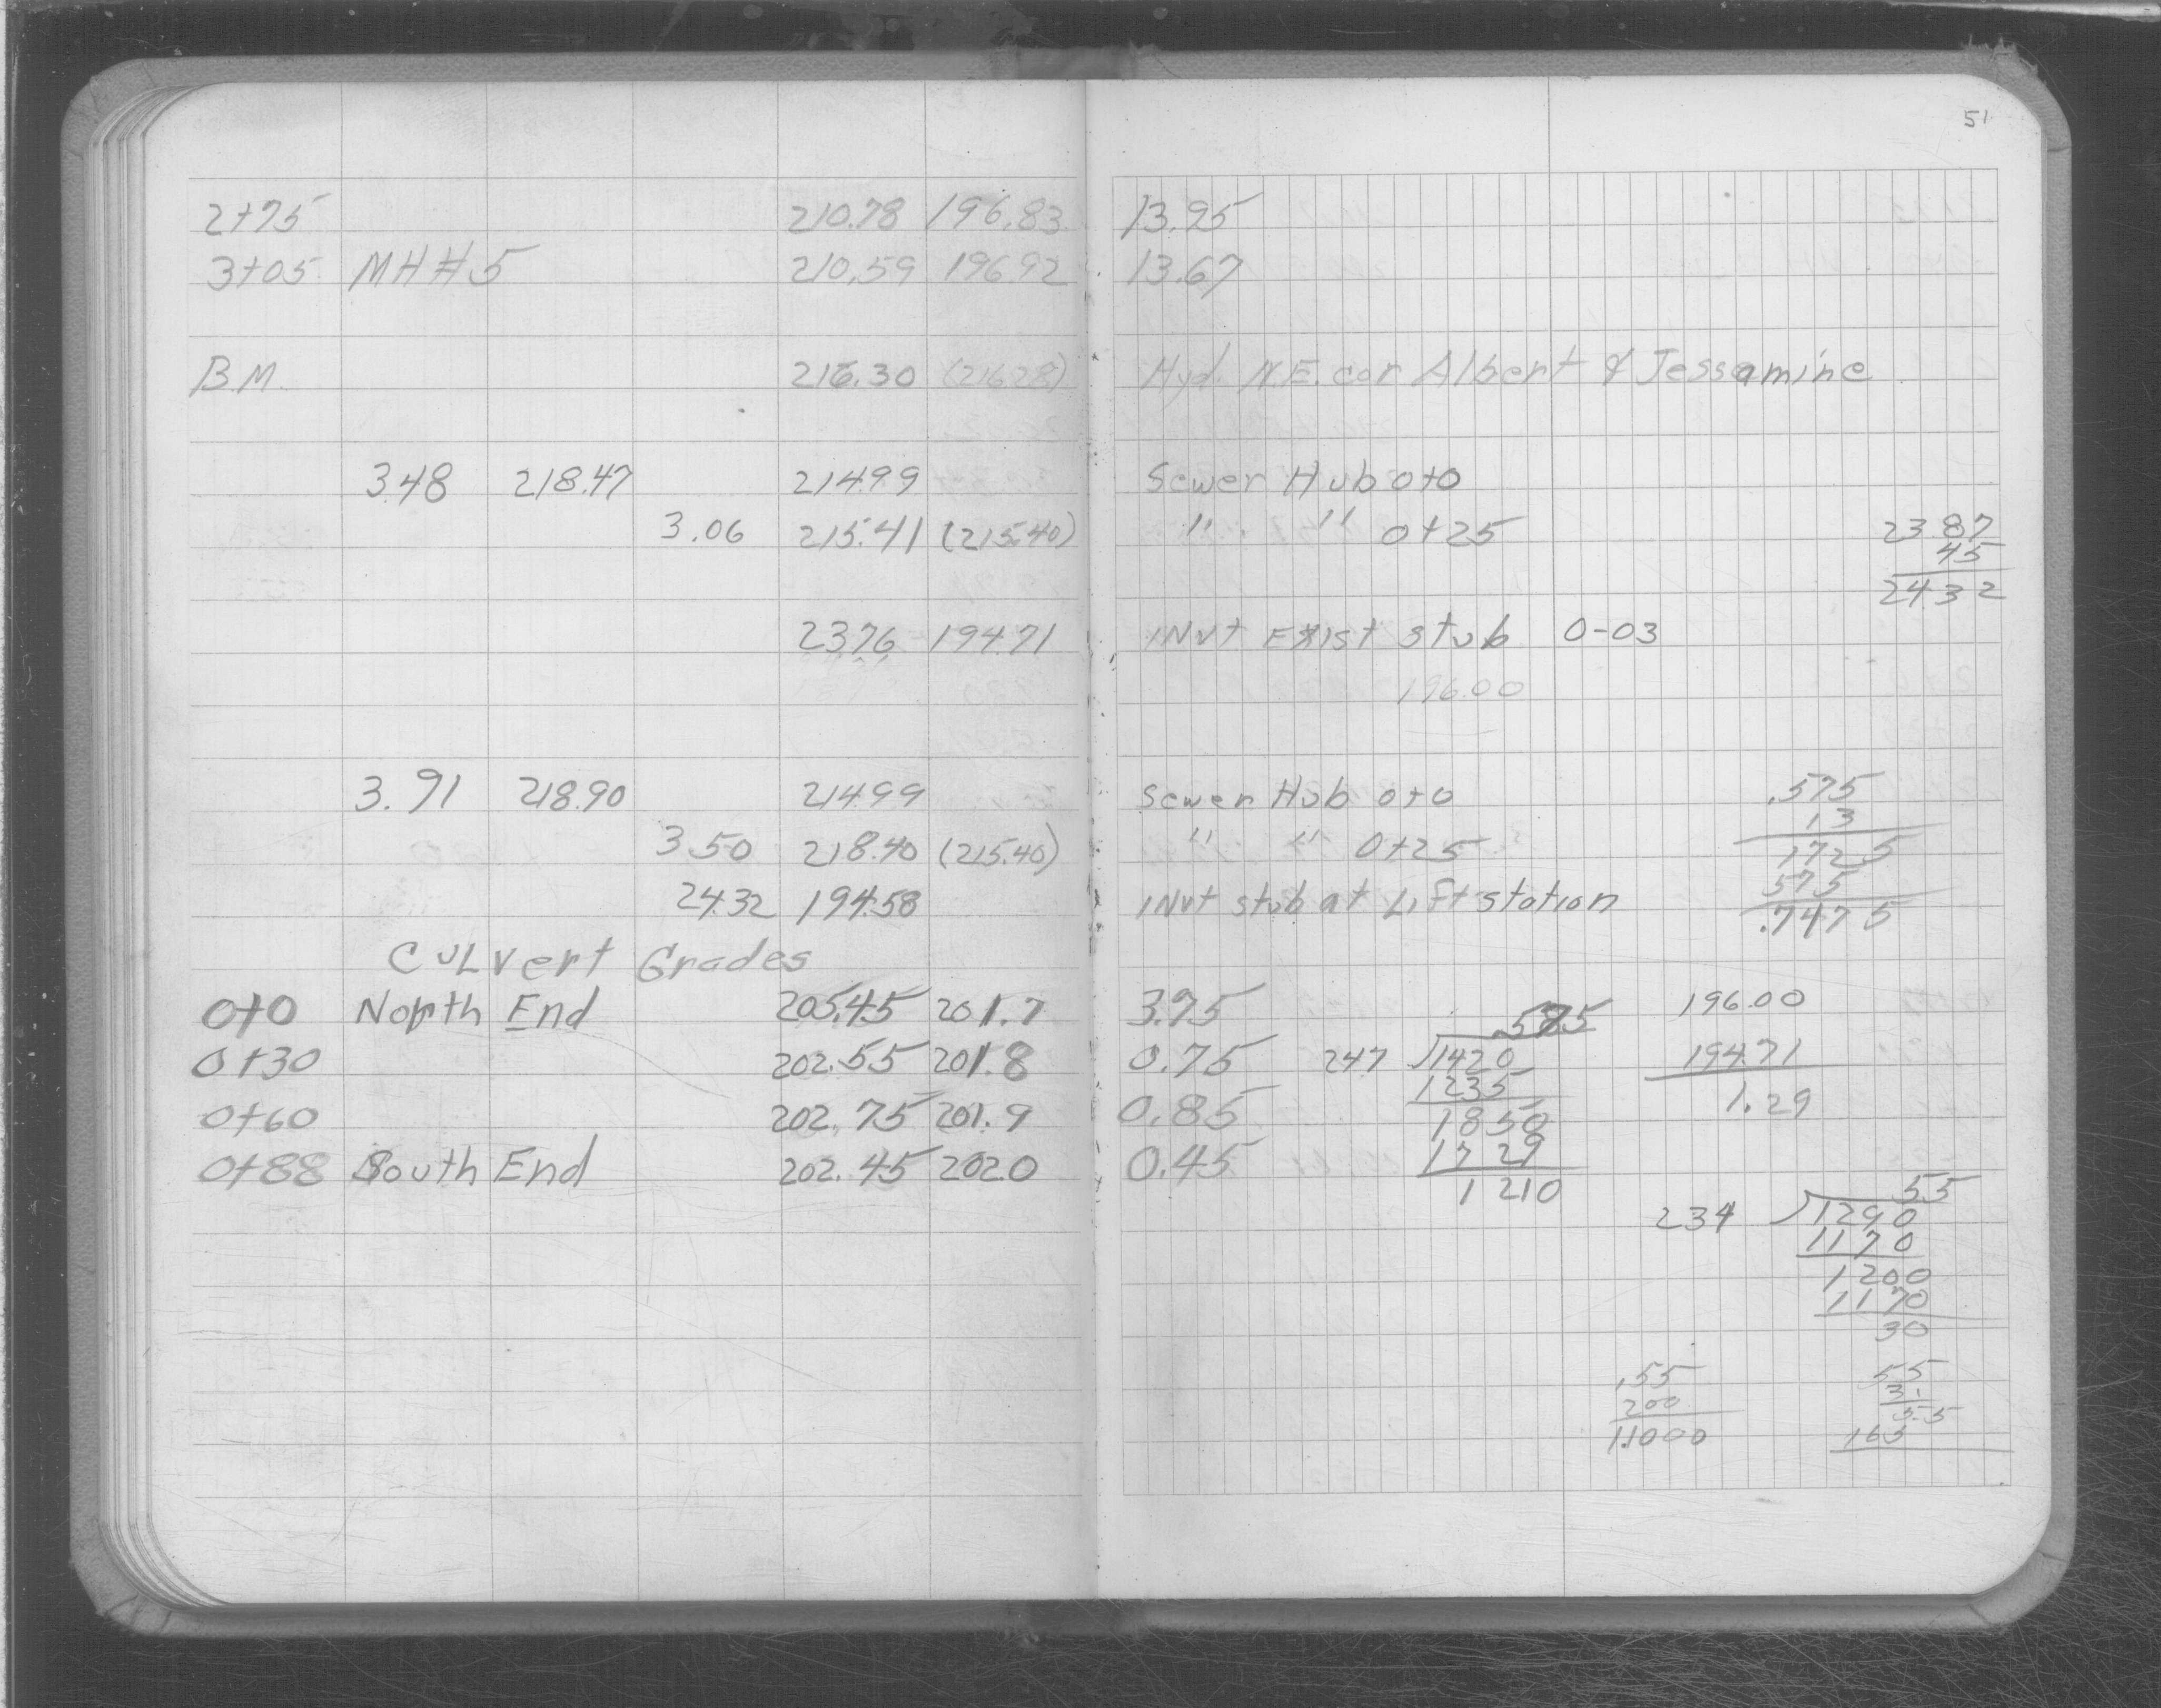 51
2+75 210.78 196.83 13.95
3+05 MH #5 210.59 196.92 13.67
B.M. 216.30 (216.28) Hyd. N.E. cor Albert & Jessamine
3.48 218.47 214.99 Sewer Hub 0+0
3.06 215.41 (215.40) " " 0+25
2387
45
2432
23.76 194.71 INvt Exist stub 0-03
196.00
3.91 218.90 214.99 Sewer Hub 0+0
3.50 218.40 (215.40) " " 0+25
24.32 194.58 INvt stub at Lift station
.575
13
1725
575
.7475
Culvert Grades
0+0 North End 205.45 201.7 3.75
0+30 202.55 201.8 0.75
0+60 202.75 201.9 0.85
0+88 South End 202.45 202.0 0.45
.575
247 1420
1235
1850
1729
1210
196.00
194.71
1.29
55
234 1290
1170
1200
1170
30
.55
200
1.1000
55
31
55
165